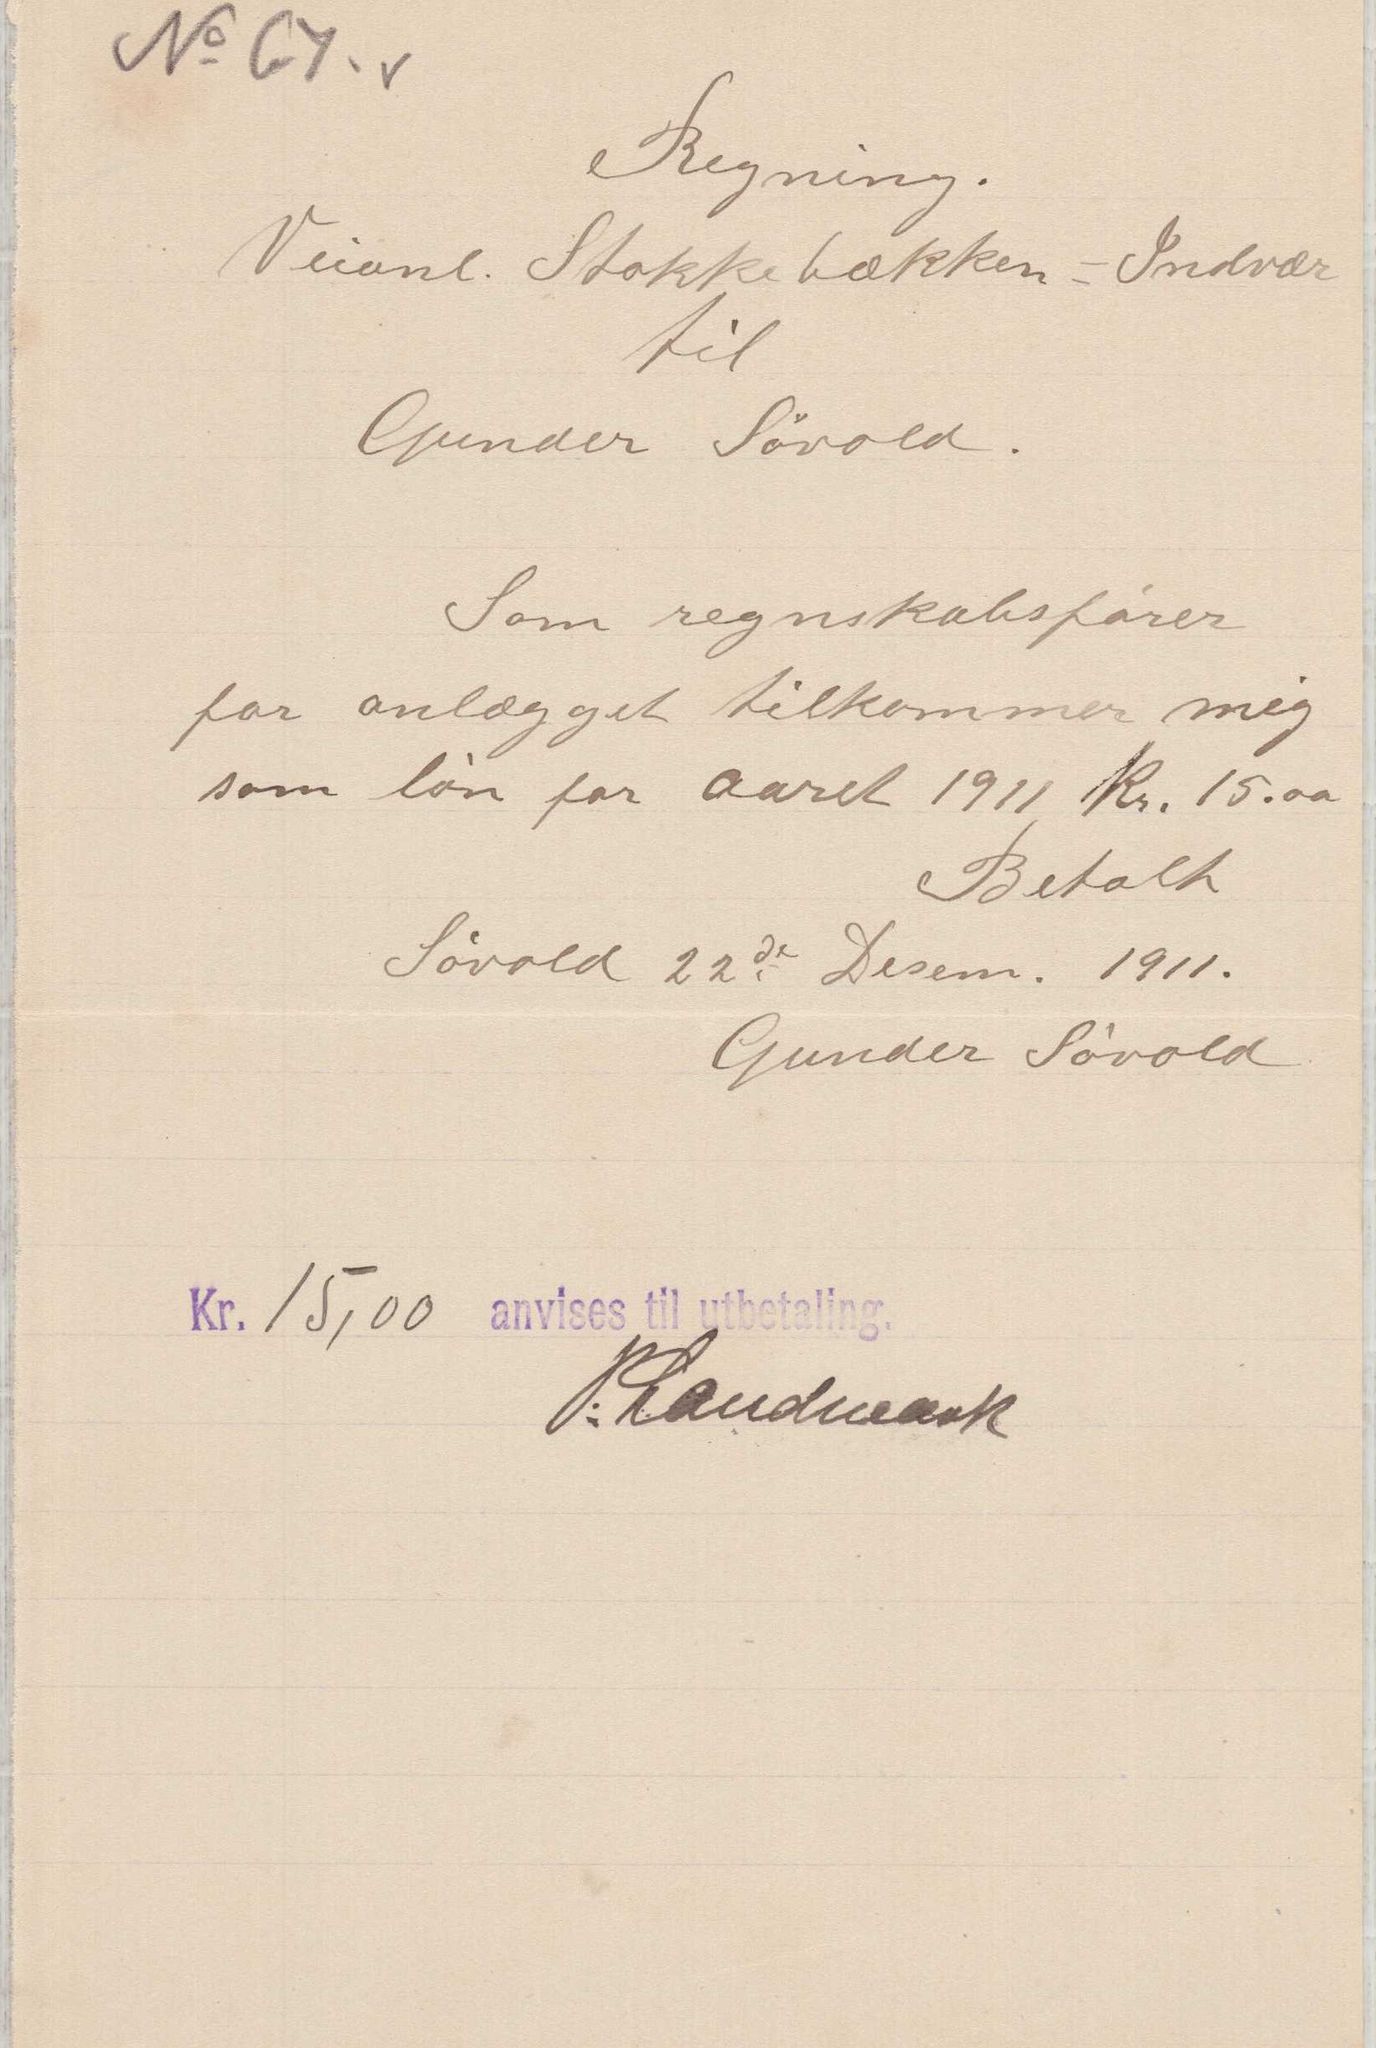 No 67. v
Regning.
Veianl. Stokkebækken - Indvær
til
Gunder Sövold.
Som regnskabsfører
for anlægget tilkommer mig
som lön for aaret 1911 Kr. 15.00
Betalt
Sövold 22de Desem. 1911.
Gunder Sövold
Kr. 15,00 anvises til utbetaling.
P. Landmark